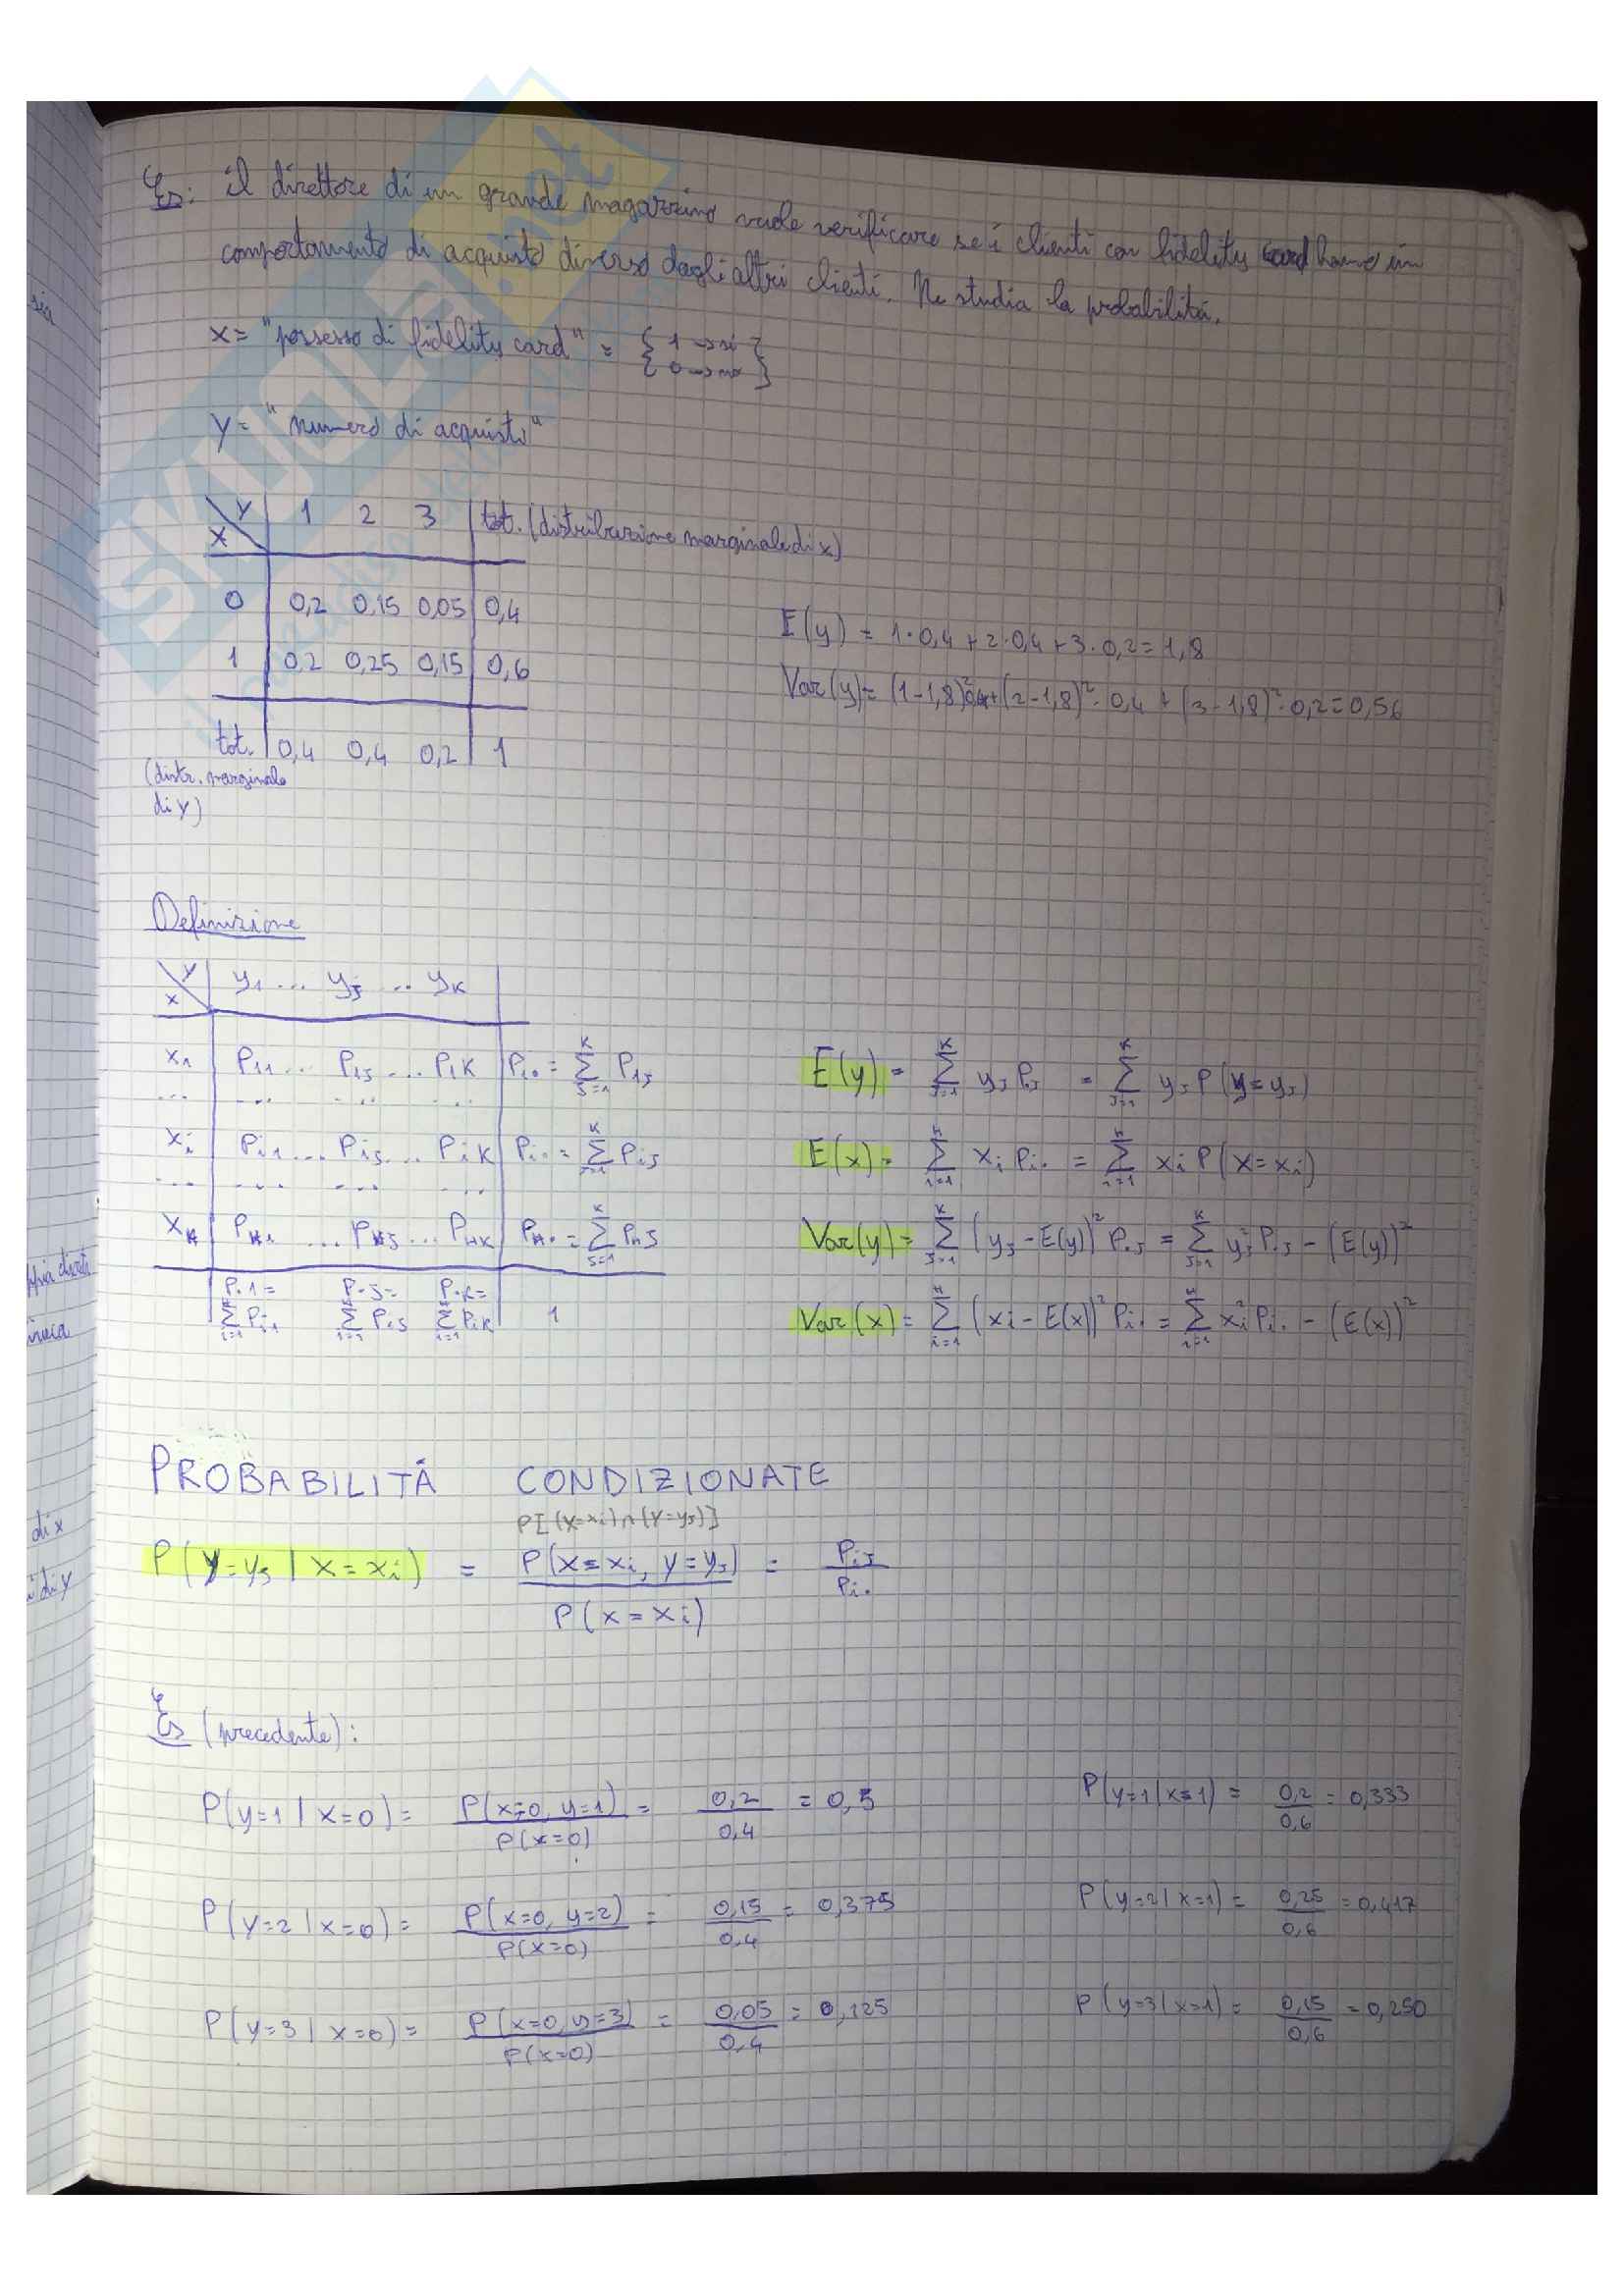 Es: il direttore di un grande magazzino vuole verificare se i clienti con fidelity card hanno un
comportamento di acquisto diverso dagli altri clienti. Ne studia la probabilità.
X = "possesso di fidelity card" = { 1 → sì
0 → no }
Y = "numero di acquisti"
Y 1 2 3 tot. (distribuzione marginale di x)
X
0 0,2 0,15 0,05 0,4
E(y) = 1·0,4 + 2·0,4 + 3·0,2 = 1,8
1 0,2 0,25 0,15 0,6
Var(y) = (1-1,8)² 0,4 + (2-1,8)²·0,4 + (3-1,8)²·0,2 = 0,56
tot. 0,4 0,4 0,2 1
(distr. marginale
di Y)
Definizione
Y y1 ... yj .. yK
X
x1 P11 ... P1j ... P1K P1• = Σ(j=1..K) P1j
... ... ... ...
xi Pi1 ... Pij ... PiK Pi• = Σ(j=1..K) Pij
... ... ... ...
xH PH1 ... PHj ... PHK PH• = Σ(j=1..K) PHj
P•1 = P•j = P•K =
Σ(i=1..H) Pi1 Σ(i=1..H) Pij Σ(i=1..H) PiK 1
E(y) = Σ(j=1..K) yj P•j = Σ(j=1..K) yj P(y=yj)
E(x) = Σ(i=1..H) xi Pi• = Σ(i=1..H) xi P(X=xi)
Var(y) = Σ(j=1..K) (yj - E(y))² P•j = Σ(j=1..K) yj² P•j - (E(y))²
Var(x) = Σ(i=1..H) (xi - E(x))² Pi• = Σ(i=1..H) xi² Pi• - (E(x))²
PROBABILITÁ CONDIZIONATE
P[(X=xi)∩(Y=yj)]
P(Y=yj | X=xi) = P(X=xi, Y=yj) / P(X=xi) = Pij / Pi•
Es (precedente):
P(y=1 | x=0) = P(x=0, y=1) / P(x=0) = 0,2 / 0,4 = 0,5 P(y=1 | x=1) = 0,2 / 0,6 = 0,333
P(y=2 | x=0) = P(x=0, y=2) / P(x=0) = 0,15 / 0,4 = 0,375 P(y=2 | x=1) = 0,25 / 0,6 = 0,417
P(y=3 | x=0) = P(x=0, y=3) / P(x=0) = 0,05 / 0,4 = 0,125 P(y=3 | x=1) = 0,15 / 0,6 = 0,250
di x
di Y
SKUOLA.net